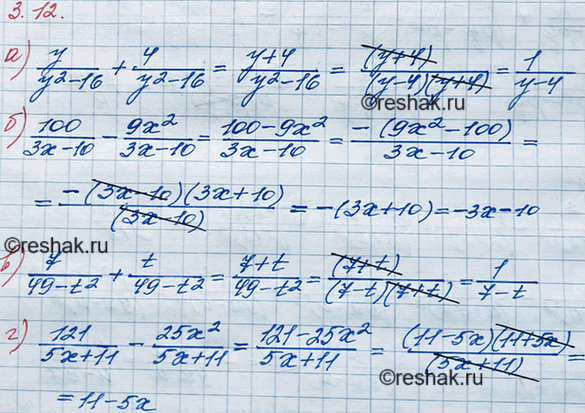 3.12.
а) y/(y²-16) + 4/(y²-16) = (y+4)/(y²-16) = (y+4)/((y-4)(y+4)) = 1/(y-4)
©reshak.ru
б) 100/(3x-10) - 9x²/(3x-10) = (100-9x²)/(3x-10) = -(9x²-100)/(3x-10) =
= -(3x-10)(3x+10)/(3x-10) = -(3x+10) = -3x-10
©reshak.ru
в) 7/(49-t²) + t/(49-t²) = (7+t)/(49-t²) = (7+t)/((7-t)(7+t)) = 1/(7-t)
г) 121/(5x+11) - 25x²/(5x+11) = (121-25x²)/(5x+11) = (11-5x)(11+5x)/(5x+11) =
©reshak.ru
= 11-5x